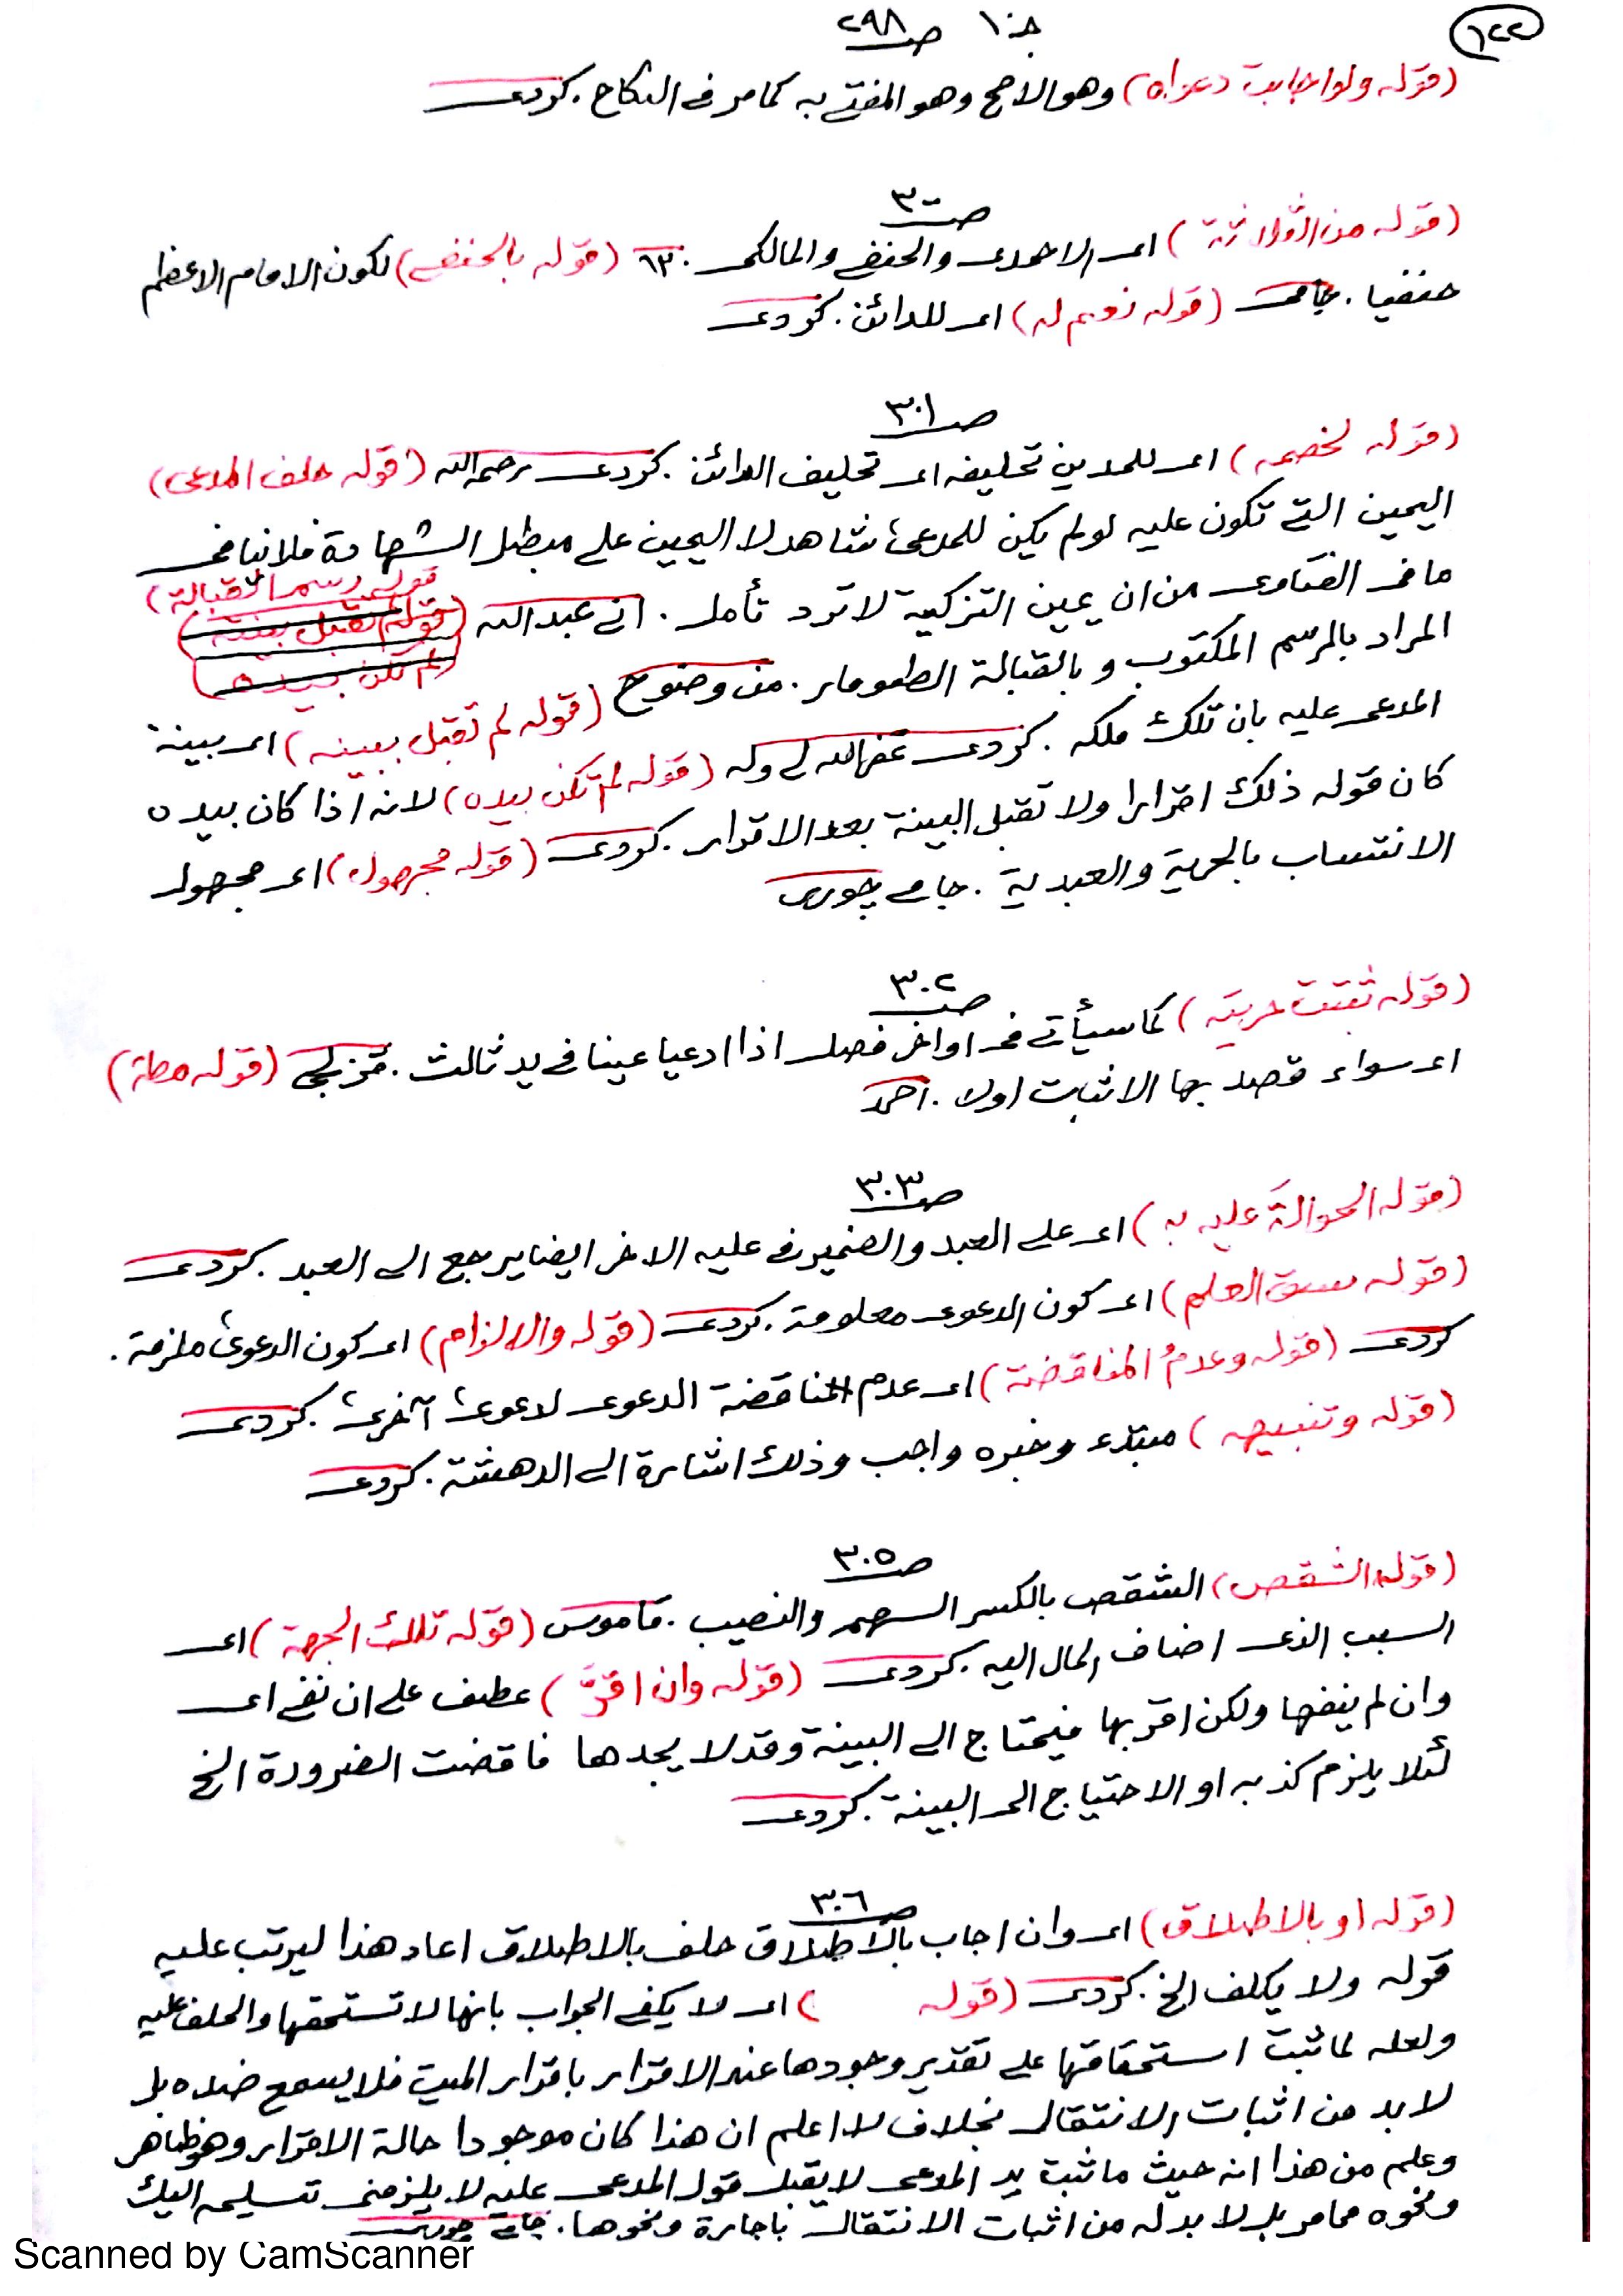 ١٢٢
جـ ١٠ صـ ٢٩٨
(قوله ولو اجابت دعواه) وهو الاصح وهو المفتى به كما مر في النكاح . كردى
صـ ٣٠٠
(قوله من الثلاثة) اى الاحمدى والحنفي والمالكى . (قوله بالحنفي) لكون الامام الاعظم
حنفيا . جامى (قوله نعم له) اى للدائن . كردى
صـ ٣٠١
(قوله لخصمه) اى للمدين تحليفه اى تحليف الدائن . كردى رحمه الله (قوله حلف المدعى)
اليمين التى تكون عليه لو لم يكن للمدعى شاهد لا اليمين على مبطل الشهادة فلا ينافى
ما فى الفتاوى من ان يمين التزكية لا ترد تأمل . ابي عبد الله (قوله رسم القبالة)
المراد بالرسم المكتوب و بالقبالة الطومار . من وضوح (قوله لم تقبل بينه) اى بينة
المدعى عليه بان تلك ملكه . كردى غفر الله لى وله (قوله لم تكن بيده) لانه اذا كان بيده
كان قوله ذلك اقرارا ولا تقبل البينة بعد الاقرار . كردى (قوله مجهول) اى مجهول
الانتساب بالحرية والعبدية . جامى چورى
صـ ٣٠٢
(قوله ثبتت حريته) كما سيأتى فى اواخر فصل اذا ادعيا عينا في يد ثالث . قزلجى (قوله مطة)
اى سواء قصد بها الاثبات اولا . احمد
صـ ٣٠٣
(قوله الحوالةَ عليه به) اى على العبد والضمير في عليه الاخر ايضا يرجع الى العبد . كردى
(قوله سبق العلم) اى كون الدعوى معلومة . كردى (قوله والالزام) اى كون الدعوى ملزمة .
كردى (قوله وعدمُ المناقضة) اى عدم المناقضة الدعوى لدعوى آخرى . كردى
(قوله وتنبيهه) مبتدء وخبره واجب وذلك اشارة الى الدهشة . كردى
صـ ٣٠٥
(قوله الشقص) الشقص بالكسر السهم والنصيب . قاموس (قوله تلك الجهة) اى
السبب الذى اضاف المال اليه . كردى (قوله وان اقرّ) عطف على ان نفي اى
وان لم ينفها ولكن اقر بها فيحتاج الى البينة وقد لا يجدها فاقضت الضرورة الخ
لئلا يلزم كذبه او الاحتياج الى البينة . كردى
صـ ٣٠٦
(قوله او بالاطلاق) اى وان اجاب بالاطلاق حلف بالاطلاق اعاد هذا ليرتب عليه
قوله ولا يكلف الخ . كردى (قوله ) اى لا يكفي الجواب بانها لا تستحقها والحلف عليه
ولعله لما ثبت استحقاقها على تقدير وجودها عند الاقرار باقرار الميت فلا يسمع ضده بل
لا بد من اثبات الانتقال بخلاف لا اعلم ان هذا كان موجودا حالة الاقرار وهو ظاهر
وعلم من هذا انه حيث ما ثبت يد المدعى لا يقبل قول المدعى عليه لا يلزمنى تسليمه اليك
ونحوه مما مر بل لا بد له من اثبات الانتقال باجارة ونحوها . جامى چورى
Scanned by CamScanner